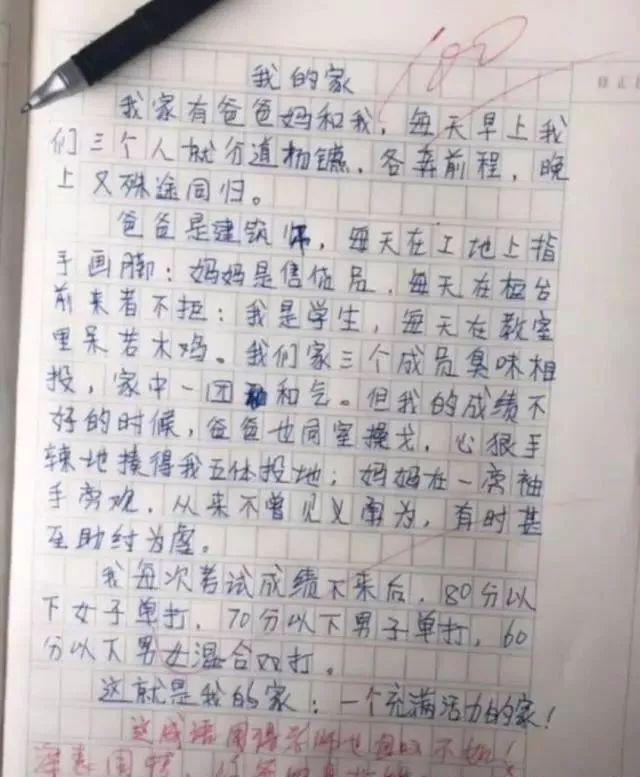 100
我的家
我家有爸爸妈和我，每天早上我
们三个人就分道杨镳，各奔前程，晚
上又殊途同归。
爸爸是建筑师，每天在工地上指
手画脚；妈妈是售货员，每天在柜台
前来者不拒；我是学生，每天在教室
里呆若木鸡。我们家三个成员臭味相
投，家中一团和气。但我的成绩不
好的时候，爸爸也同室操戈，心狠手
辣地揍得我五体投地；妈妈在一旁袖
手旁观，从来不曾见义勇为，有时甚
至助纣为虐。
我每次考试成绩下来后，80分以
下女子单打，70分以下男子单打，60
分以下男女混合双打。
这就是我的家：一个充满活力的家！
这成语用得老师也自叹不如！